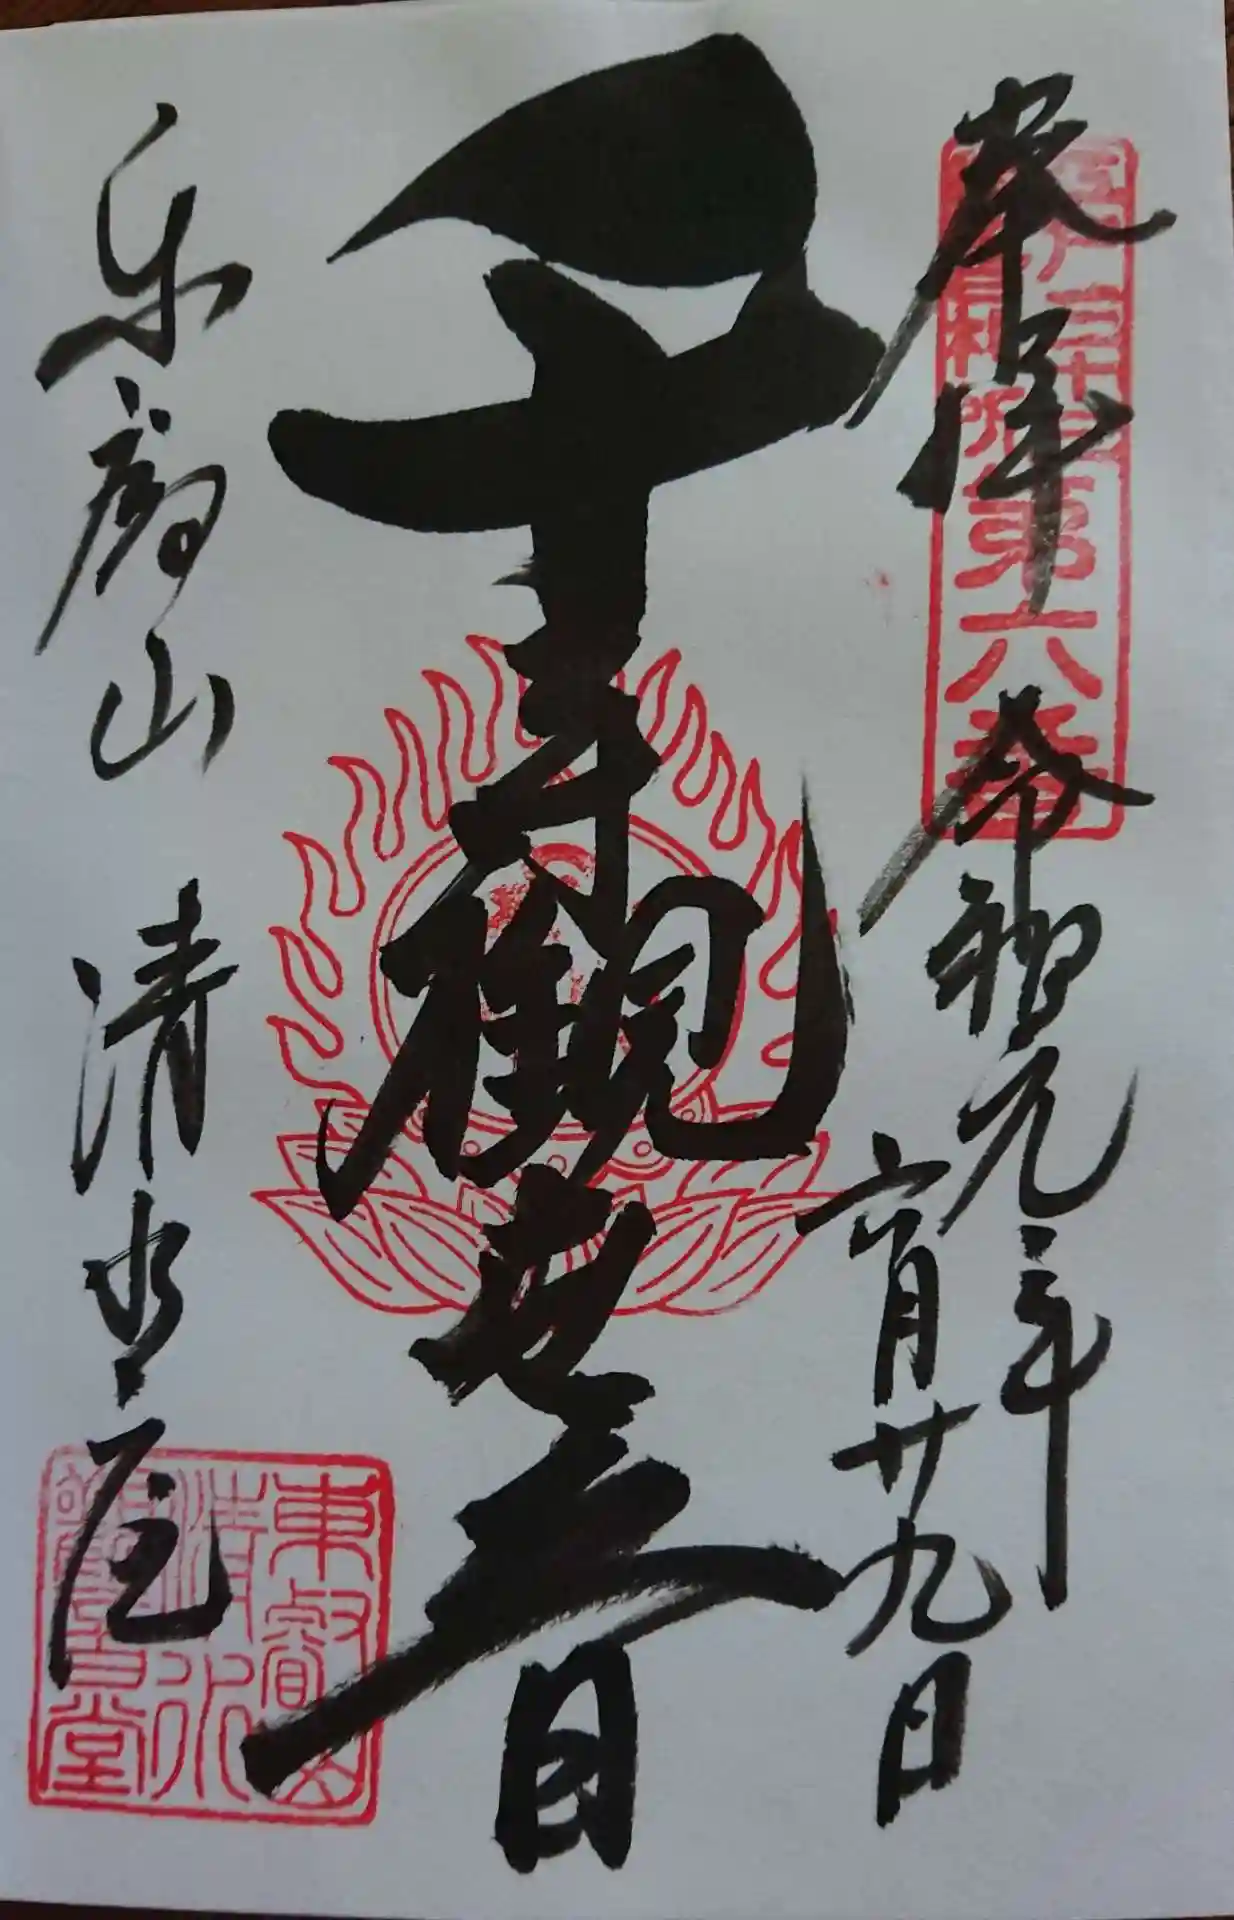 奉拝
江戸三十三
観音札所
第六番
令和元年
六月廿九日
千手観世音
東叡山 清水堂
東叡山
清水
観音堂